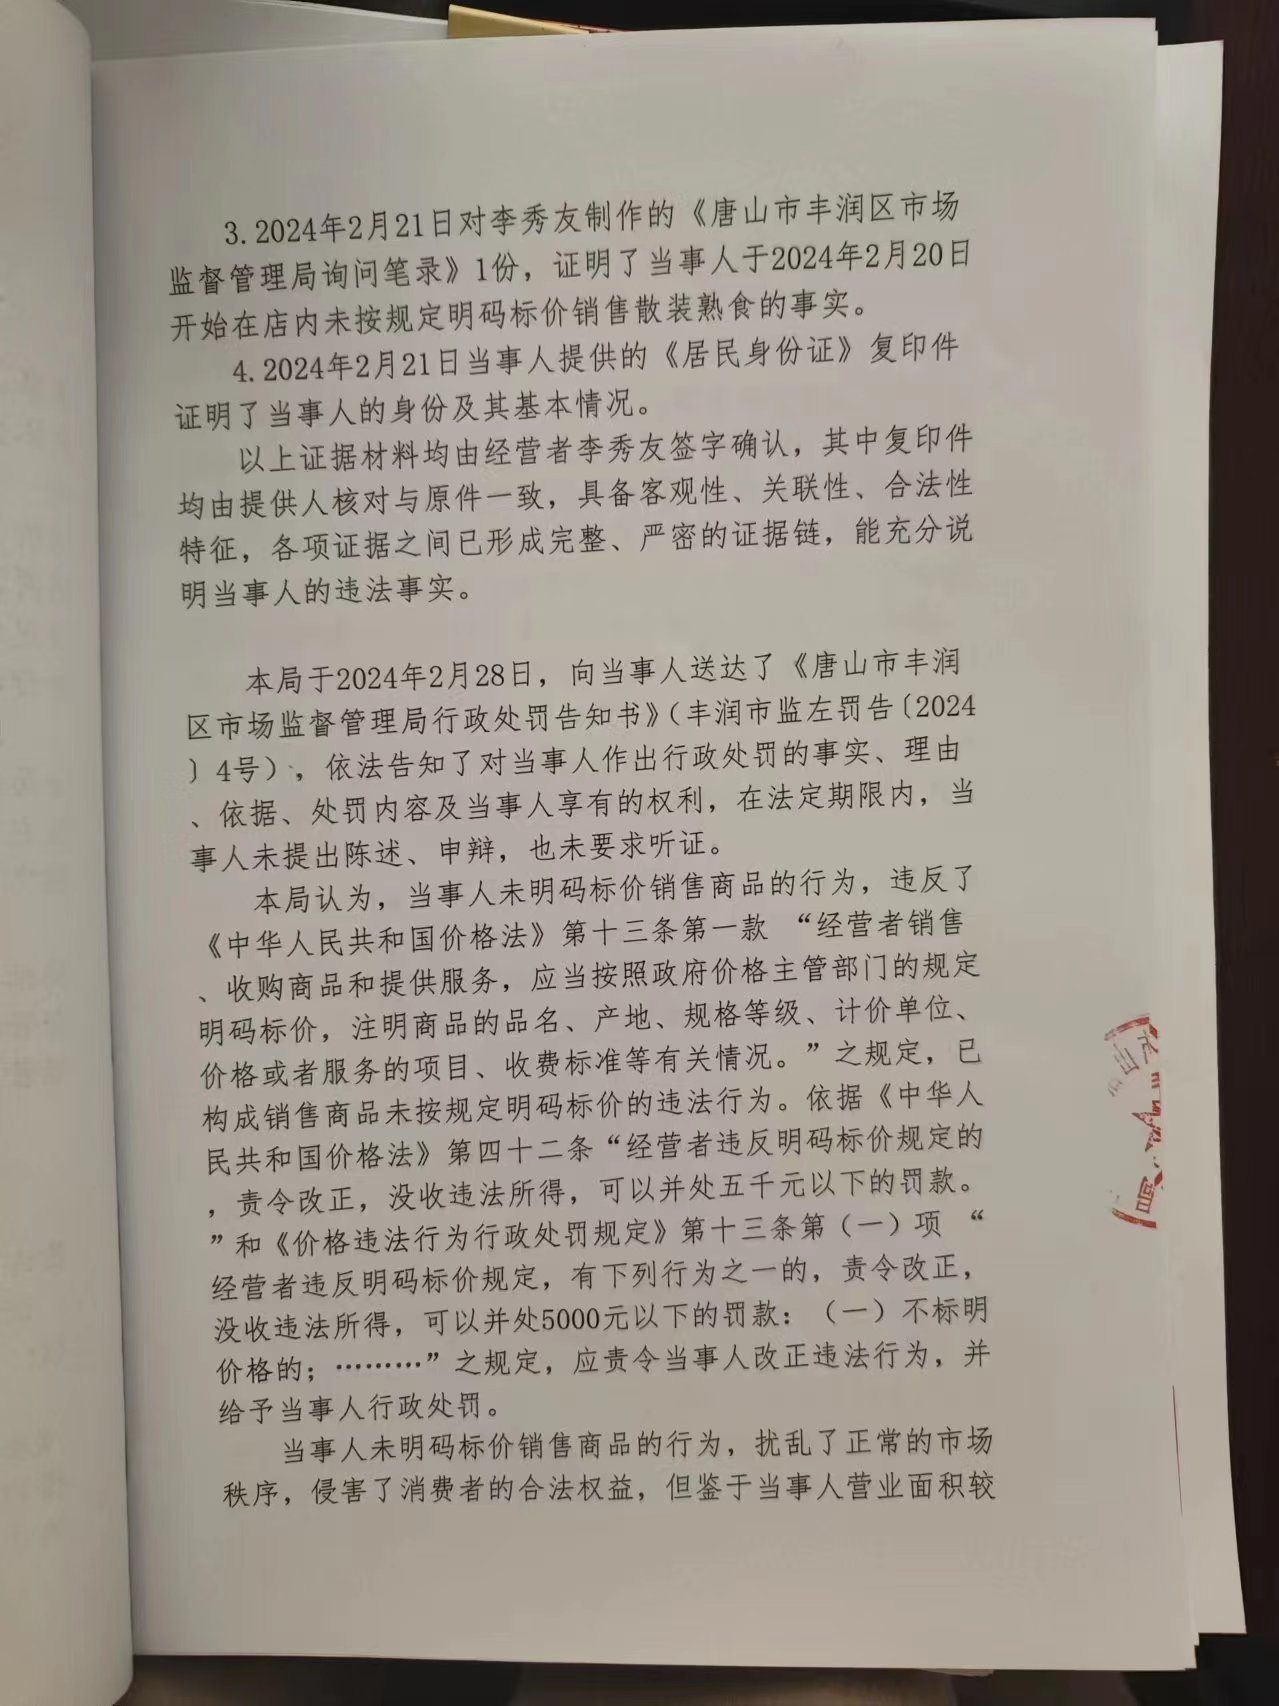 3.2024年2月21日对李秀友制作的《唐山市丰润区市场
监督管理局询问笔录》1份，证明了当事人于2024年2月20日
开始在店内未按规定明码标价销售散装熟食的事实。
4.2024年2月21日当事人提供的《居民身份证》复印件
证明了当事人的身份及其基本情况。
以上证据材料均由经营者李秀友签字确认，其中复印件
均由提供人核对与原件一致，具备客观性、关联性、合法性
特征，各项证据之间已形成完整、严密的证据链，能充分说
明当事人的违法事实。
本局于2024年2月28日，向当事人送达了《唐山市丰润
区市场监督管理局行政处罚告知书》（丰润市监左罚告〔2024
〕4号），依法告知了对当事人作出行政处罚的事实、理由
、依据、处罚内容及当事人享有的权利，在法定期限内，当
事人未提出陈述、申辩，也未要求听证。
本局认为，当事人未明码标价销售商品的行为，违反了
《中华人民共和国价格法》第十三条第一款 “经营者销售
、收购商品和提供服务，应当按照政府价格主管部门的规定
明码标价，注明商品的品名、产地、规格等级、计价单位、
价格或者服务的项目、收费标准等有关情况。”之规定，已
构成销售商品未按规定明码标价的违法行为。依据《中华人
民共和国价格法》第四十二条“经营者违反明码标价规定的
，责令改正，没收违法所得，可以并处五千元以下的罚款。
”和《价格违法行为行政处罚规定》第十三条第（一）项 “
经营者违反明码标价规定，有下列行为之一的，责令改正，
没收违法所得，可以并处5000元以下的罚款：（一）不标明
价格的；………”之规定，应责令当事人改正违法行为，并
给予当事人行政处罚。
当事人未明码标价销售商品的行为，扰乱了正常的市场
秩序，侵害了消费者的合法权益，但鉴于当事人营业面积较